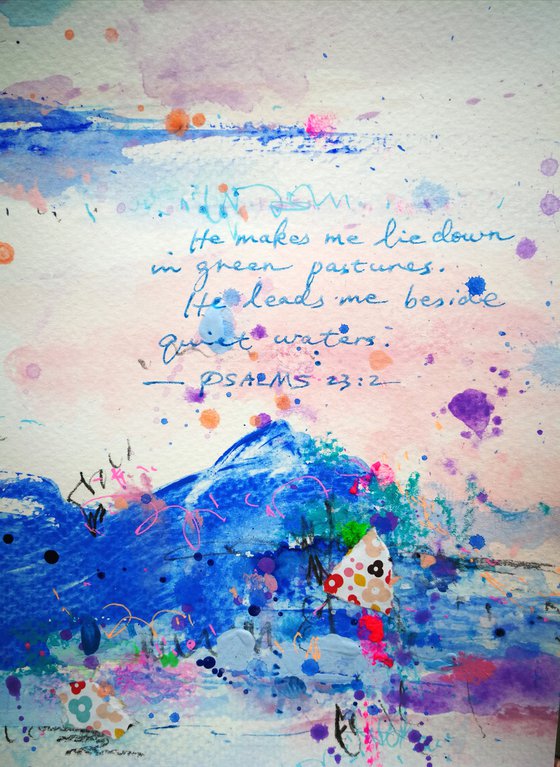 He makes me lie down
in green pastures.
He leads me beside
quiet waters.
— PSALMS 23:2 —